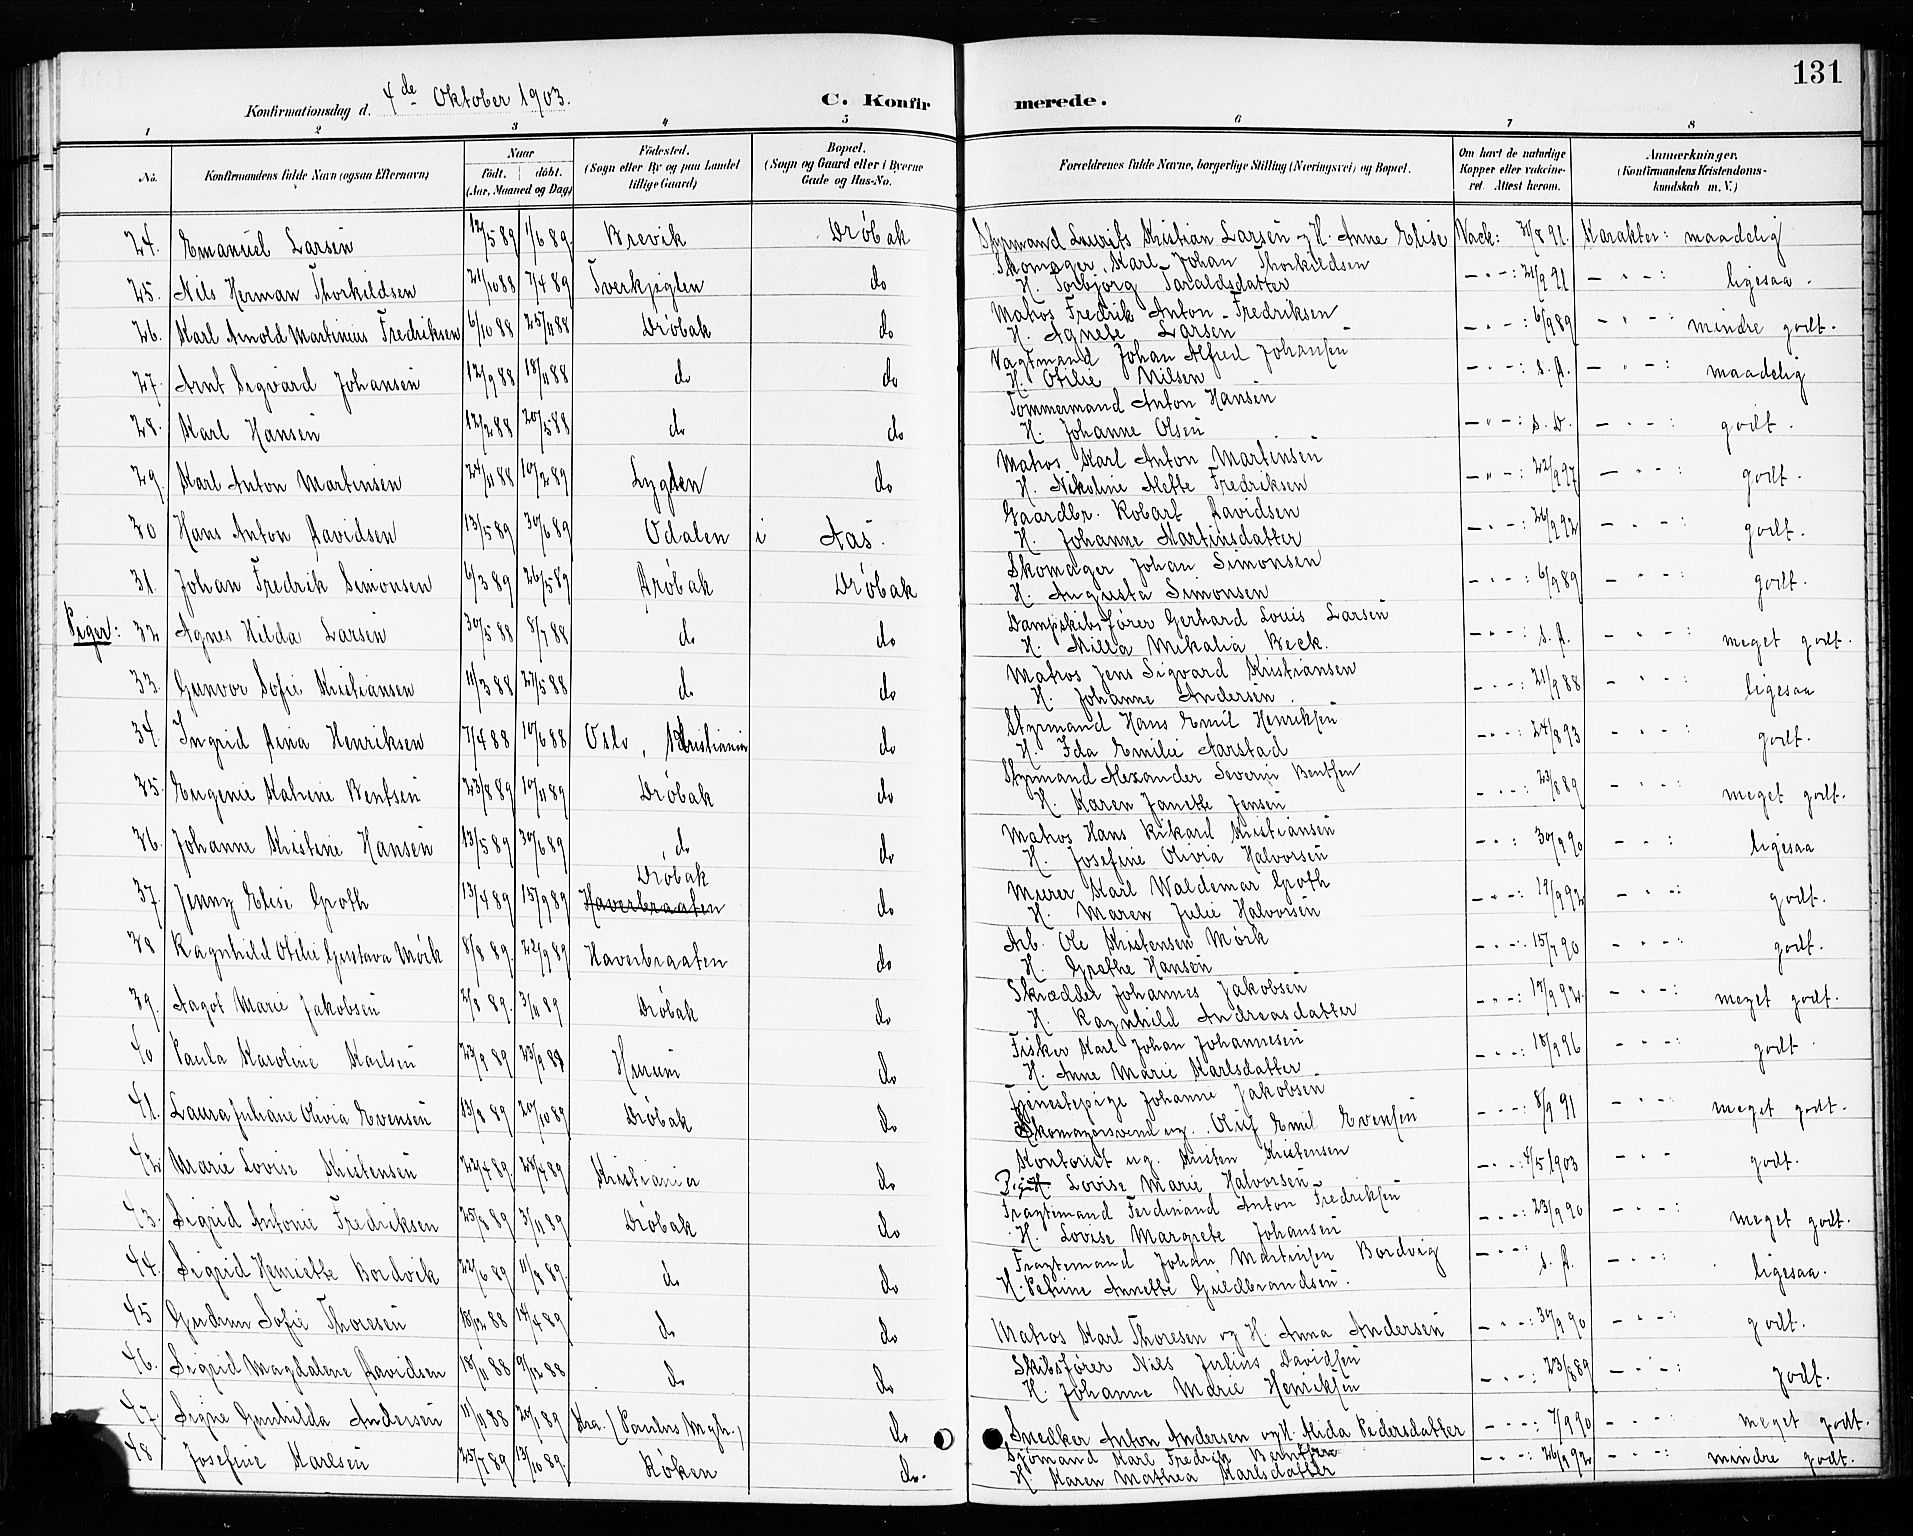 131
Konfirmationsdag d. 4de Oktober 1903.
C. Konfirmerede.
1 2 3 4 5 6 7 8
No. Konfirmandens fulde Navn (ogsaa Efternavn) Naar født. døbt. (Aar, Maaned og Dag) Fødested. (Sogn eller By og paa Landet tillige Gaard) Bopæl. (Sogn og Gaard eller i Byerne Gade og Hus-No. Forældrenes fulde Navne, borgerlige Stilling (Næringsvei) og Bopæl. Om havt de naturlige Kopper eller vaccineret. Attest herom. Anmærkninger. (Konfirmandens Kristendomskundskab m. V.)
24. Emanuel Larsen 12/5 89 1/6 89. Brevik Drøbak Styrmand Laurits Kristian Larsen og H. Anne Elise Vack: 31/8 91. Karakter: maadelig
25. Nils Herman Thorkildsen 21/10 88 7/4 89 do Skomager Karl Johan Thorkildsen
H. Torbjørg Taraldsdatter - " - : 21/9 91 - " - : ligesaa.
26. Karl Arnold Martinius Fredriksen 6/10 88 25/11 88 Drøbak do Matros Fredrik Anton Fredriksen
H. Agnete Larsen - " - : 6/9 89 - " - : mindre godt.
27. Arnt Sigvard Johansen 12/9 88 18/11 88 do do Vagtmand Johan Alfred Johansen
H. Otilie Nilsen - " - : s. D. - " - : maadelig
28. Karl Hansen 12/2 88 20/5 88 do do Tømmermand Anton Hansen
H. Johanne Olsen - " - : s. D. - " - : godt.
29. Karl Anton Martinsen 24/11 88 10/2 89 do Matros Karl Anton Martinsen
H. Nikoline Alette Fredriksen - " - : 22/9 97 - " - : godt.
30 Hans Anton Davidsen 13/5 89 30/6 89 Odalen i Aas. Gaardbr. Robart Davidsen
H. Johanne Martinsdatter - " - : 26/9 92 - " - : godt.
31. Johan Fredrik Simonsen 6/3 89 26/5 89 Drøbak Drøbak Skomager Johan Simonsen
H. Augusta Simonsen - " - : 6/9 89 - " - : godt.
Piger: 32 Agnes Hilda Larsen 30/5 88 8/7 88 do do Dampskibsfører Gerhard Louis Larsen
H. Milla Mikalia Beck. - " - : s. D. - " - : meget godt.
33. Gunvor Sofie Kristiansen 11/3 88 27/5 88 do do Matros Jens Sigvard Kristiansen
H. Johanne Andersen - " - : 21/9 88 - " - : ligesaa
34. Ingrid Dina Henriksen 7/4 88 10/6 88 Oslo, Kristiania do Styrmand Hans Emil Henriksen
H. Ida Emilie Aarstad - " - : 24/8 93 - " - : godt.
35. Eugenie Katrine Bentsen 23/8 89 10/11 89 Drøbak do Styrmand Alexander Severin Bentsen
H. Karen Janette Jensen - " - : 23/8 89 - " - : meget godt.
36. Johanne Kristine Hansen 13/5 89 30/6 89 do do Matros Hans Rikard Kristiansen
H. Josefine Olivia Halvorsen - " - : 30/9 90 - " - : ligesaa
37. Jenny Elise Groth 13/4 89 15/9 89 Drøbak
Haverbraaten do Murer Karl Waldemar Groth
H. Maren Julie Halvorsen - " - : 19/9 92 - " - : godt.
38 Ragnhild Otilie Gustava Mørk 8/8 89. 22/9 89 Haverbraaten do Arb. Ole Kristensen Mørk
H. Grethe Hansen - " - : 15/7 90 - " - : godt.
39. Aagot Marie Jakobsen 2/8 89. 3/11 89 Drøbak do Skrædder Johannes Jakobsen
H. Ragnhild Andreasdatter - " - : 17/9 92. - " - : meget godt.
40 Paula Karoline Karlsen Hurum do Fisker Karl Johan Johannesen
H. Anne Marie Karlsdatter - " - : 18/9 96 - " - : godt.
41. Laura Juliane Olivia Evensen 13/8 89 20/10 89 Drøbak do Tjenestepige Johanne Jakobsen
Skomagersvend ug. Oluf Emil Evensen - " - : 8/9 91 - " - : meget godt.
42 Marie Lovise Kristensen 22/4 89. 28/4 89. Kristiania do Kontorist ug. Kristen Kristensen
Pige Lovise Marie Halvorsen - " - : 4/5 1903 - " - godt.
43. Sigrid Antonie Fredriksen 25/8 89 3/11 89 Drøbak do Fragtemand Ferdinand Anton Fredriksen
H. Lovise Margrete Johansen - " - : 23/9 90 - " - : meget godt.
44. Sigrid Henriette Bordvik 22/6 89 11/8 89. do do Fragtemand Johan Martinsen Bordvig
H. Petrine Annette Guldbrandsen. - " - : s. D. - " - : ligesaa.
45 Gudrun Sofie Thoresen 18/12 88 14/4 89 do do Matros Karl Thoresen og H. Anna Andersen - " - : 30/9 90 - " - : godt.
46. Sigrid Magdalene Davidsen 18/11 88 9/12 88 do do Skibsfører Nils Julius Davidsen
H. Johanne Marie Henriksen - " - : 23/8 89 - " - : godt.
47. Signe Gunhilda Andersen 11/11 88 20/1 89 Kra. (Paulus Mgh.) do Snedker Anton Andersen og H. Alida Pedersdatter - " - : 7/9 90 - " - : meget godt.
48 Josefine Karlsen 25/7 89 13/10 89. Røken do. Sjømand Karl Fredrik Berntsen
H. Karen Mathea Karlsdatter - " - : 26/9 92 - " - : mindre godt.